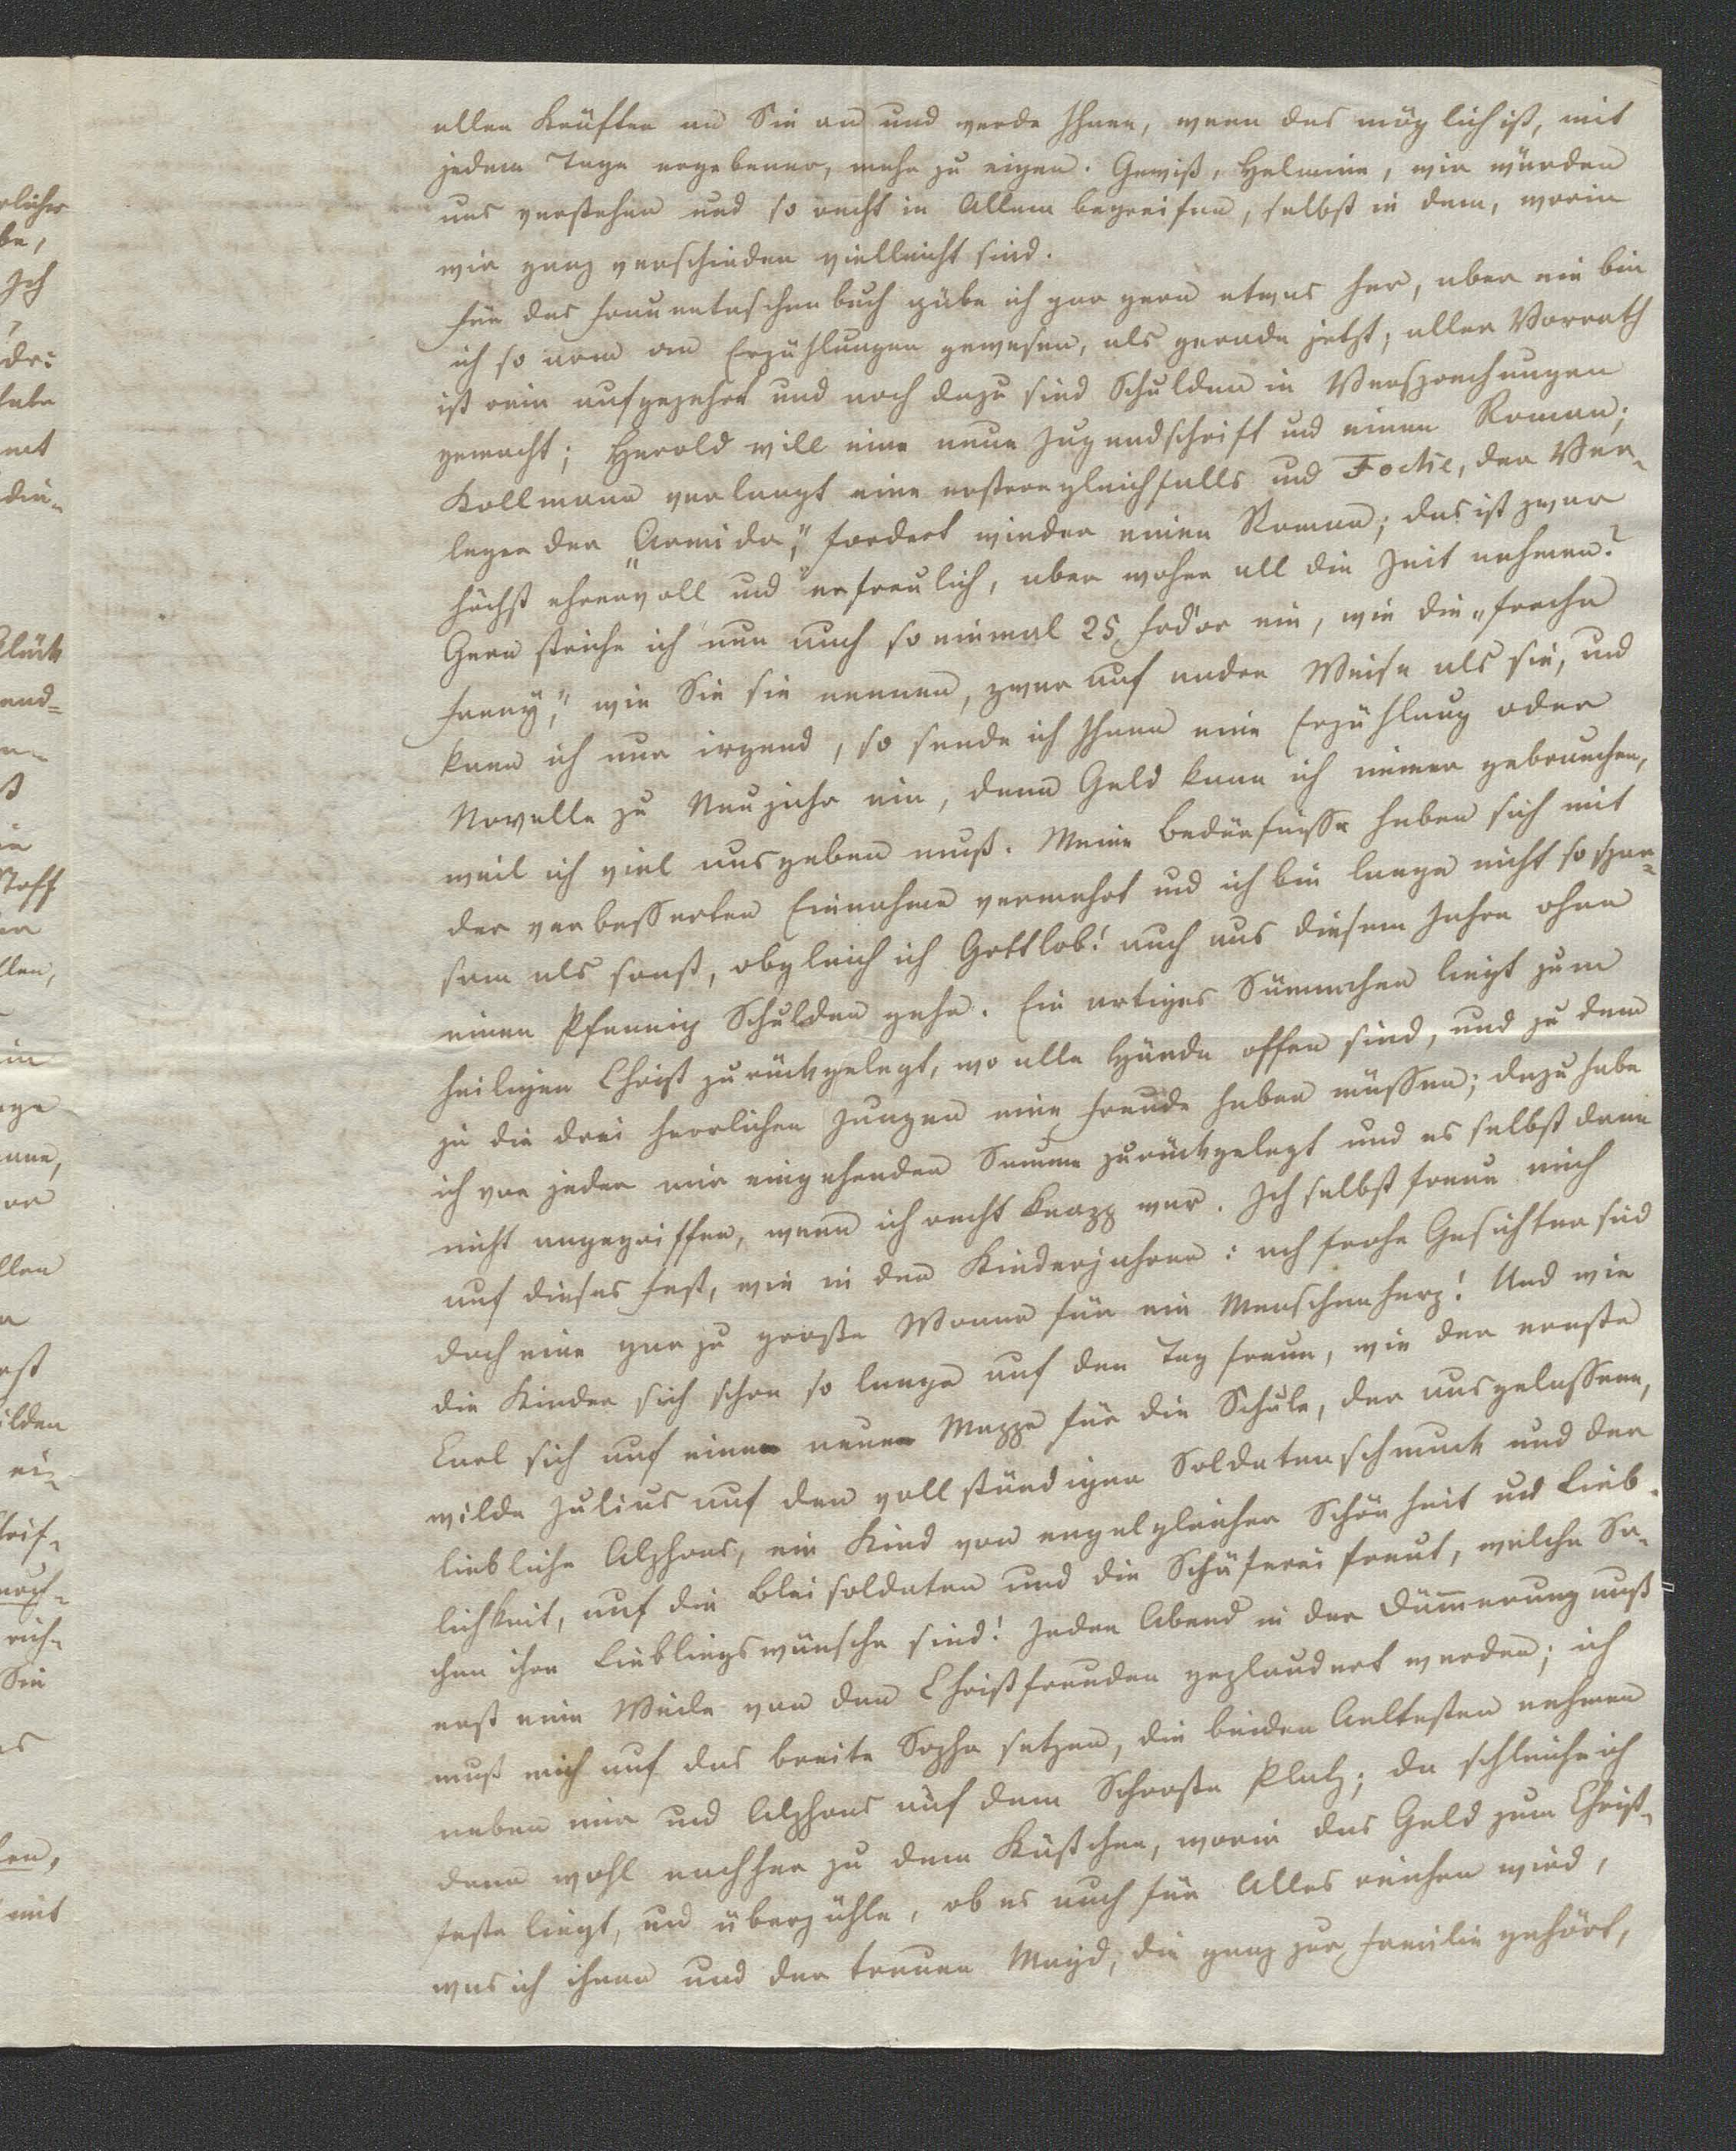 allen Kräften an Sie an und werde Ihnen, wenn das möglich ist, mit
jedem Tage ergebener, mehr zu eigen. Gewiß, Helmine, wir würden
uns verstehen und so recht in Allem begreifen, selbst in dem, worin
wir ganz verschieden vielleicht sind.
Für das Frauentaschenbuch gäbe ich gar gern etwas her, aber nie bin
ich so arm an Erzählungen gewesen, als gerade jetzt; aller Vorrath
ist rein aufgezehrt und noch dazu sind Schulden in Versprechungen
gemacht; Herold will eine neue Jugendschrift und einen Roman;
Kollmann verlangt eine erstere gleichfalls und Focke, der Ver-
leger der „Armida“, fordert wieder einen Roman; das ist zwar
höchst ehrenvoll und erfreulich, aber woher all die Zeit nehmen?
Gern striche ich nun auch so einmal 25 Frd'or ein, wie die „freche
Fanny“, wie Sie sie nennen, zwar auf andre Weise als sie, und
kann ich nur irgend, so sende ich Ihnen eine Erzählung oder
Novelle zu Neujahr ein, denn Geld kann ich immer gebrauchen,
weil ich viel ausgeben muß. Meine Bedürfnisse haben sich mit
der verbesserten Einnahme vermehrt und ich bin lange nicht so spar-
sam als sonst, obgleich ich Gottlob! auch aus diesem Jahre ohne
einen Pfennig Schulden gehe. Ein artiges Sümmchen liegt zum
heiligen Christ zurückgelegt, wo alle Hände offen sind, und zu dem
ja die drei herrlichen Jungen eine Freude haben müssen; dazu habe
ich von jeder mir eingehenden Summe zurückgelegt und es selbst dann
nicht angegriffen, wenn ich recht knapp war. Ich selbst freue mich
auf dieses Fest, wie in den Kinderjahren: ach frohe Gesichter sind
doch eine gar zu große Wonne für ein Menschenherz! Und wie
die Kinder sich schon so lange auf den Tag freun, wie der ernste
Carl sich auf eine neue Mappe für die Schule, der ausgelassene,
wilde Julius auf den vollständigen Soldatenschmuck und der
liebliche Alphons, ein Kind von engelgleicher Schönheit und Lieb-
lichkeit, auf die Bleisoldaten und die Schäferei freut, welche Sa-
chen ihre Lieblingswünsche sind! Jeden Abend in der Dämmerung muß
erst eine Weile von den Christfreuden geplaudert werden; ich
muß mich auf das breite Sopha setzen, die beiden Aeltesten nehmen
neben mir und Alphons auf dem Schooße Platz; da schleiche ich
dann wohl nachher zu dem Kästchen, worin das Geld zum Christ-
feste liegt, und überzähle, ob es auch für Alles reichen wird,
was ich ihnen und der treuen Magd, die ganz zur Familie gehört,